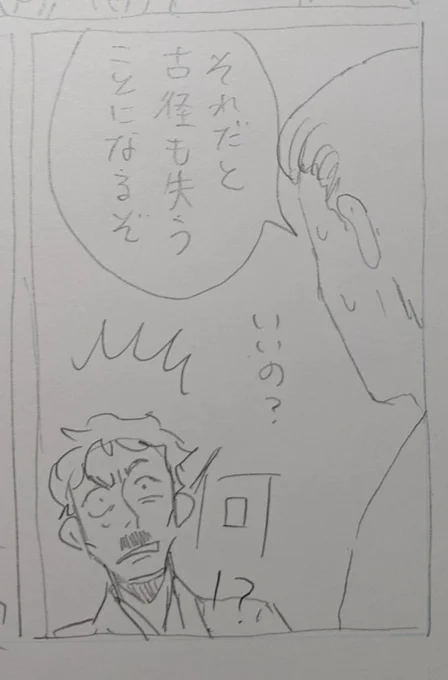 それだと
古径も失う
ことになるぞ
いいの?
!?